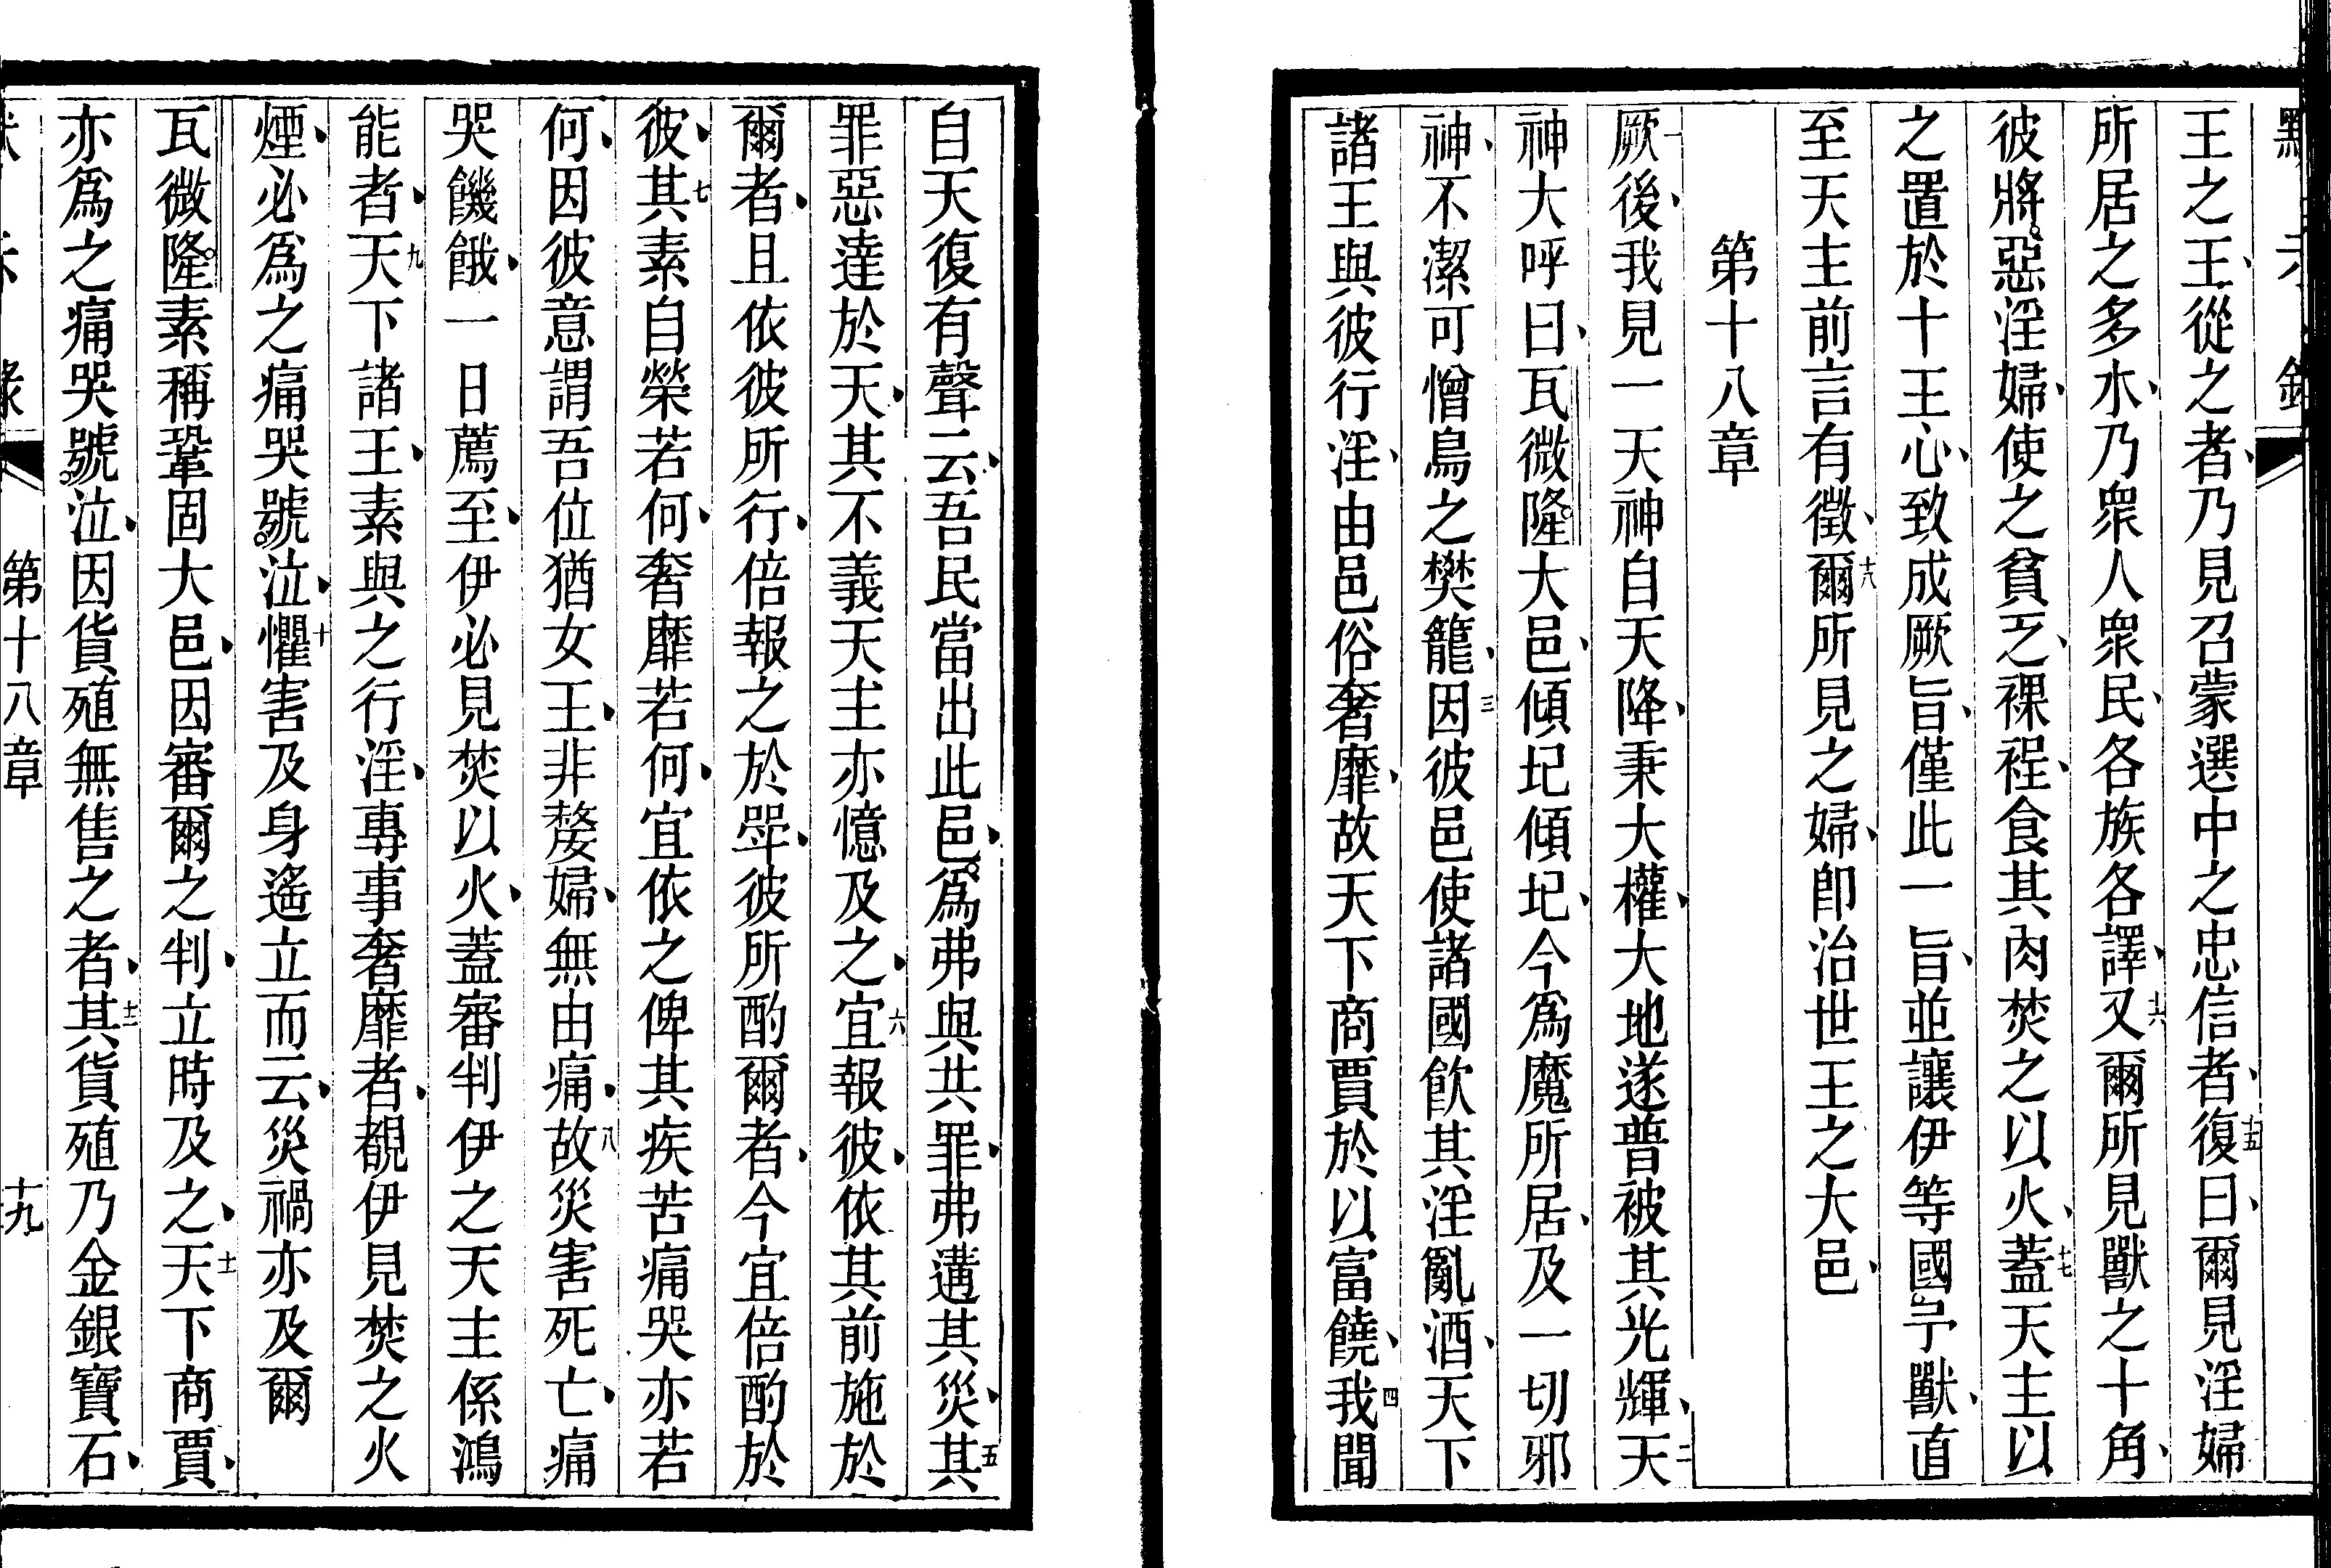 王之王、從之者、乃見召蒙選中之忠信者、十五復曰、爾見淫婦
所居之多水、乃衆人衆民、各族各譯、十六又爾所見獸之十角、
彼將惡淫婦、使之貧乏、裸裎、食其肉焚之以火、十七蓋天主以
之置於十王心、致成厥旨、僅此一旨、並讓伊等國予獸、直
至天主前言有徵、十八爾所見之婦、即治世王之大邑、
第十八章
一厥後、我見一天神自天降、秉大權、大地遂普被其光輝、二天
神大呼曰、瓦微隆大邑、傾圮傾圮、今爲魔所居、及一切邪
神、不潔可憎鳥之樊籠、三因彼邑使諸國飲其淫亂酒、天下
諸王與彼行淫、由邑俗奢靡、故天下商賈於以富饒、四我聞
自天復有聲云、吾民當出此邑、爲弗與共罪、弗遘其災、五其
罪惡達於天、其不義天主亦憶及之、六宜報彼、依其前施於
爾者、且依彼所行、倍報之於斝、彼所酌爾者、今宜倍酌於
彼、七其素自榮若何、奢靡若何、宜依之俾其疾苦痛哭亦若
何、因彼意謂吾位猶女王、非嫠婦、無由痛、八故災害死亡、痛
哭饑餓、一日薦至、伊必見焚以火、蓋審判伊之天主係鴻
能者、九天下諸王、素與之行淫、專事奢靡者、覩伊見焚之火
煙、必爲之痛哭號泣、十懼害及身遙立而云、災禍亦及爾
瓦微隆素稱鞏固大邑、因審爾之判、立時及之、十一天下商賈、
亦爲之痛哭號泣、因貨殖無售之者、十二其貨殖乃金銀寶石、
第十八章
十九